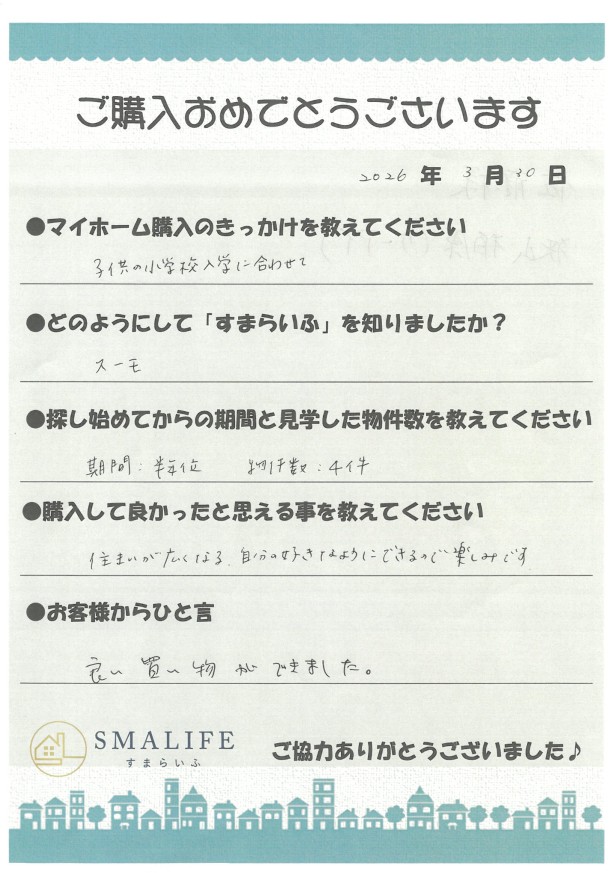 ご購入おめでとうございます
2026 年 3 月 30 日
●マイホーム購入のきっかけを教えてください
子供の小学校入学に合わせて
●どのようにして「すまらいふ」を知りましたか？
スーモ
●探し始めてからの期間と見学した物件数を教えてください
期間：半年位 物件数：4件
●購入して良かったと思える事を教えてください
住まいが広くなる、自分の好きなようにできるので楽しみです
●お客様からひと言
良い買い物ができました。
SMALIFE
すまらいふ
ご協力ありがとうございました♪